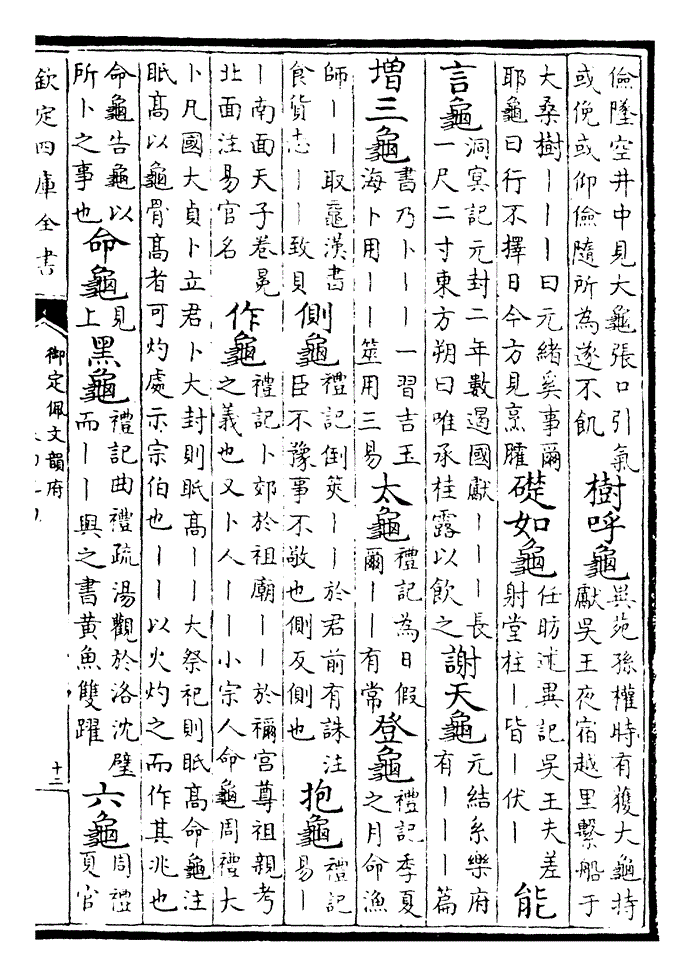 儉墮空井中見大龜張口引氣
或俛或仰儉隨所為遂不飢
樹呼龜
異苑孫權時有獲大龜持
獻吳王夜宿越里繫船于
大桑樹丨丨丨曰元緒奚事爾
耶龜曰行不擇日今方見烹臛
礎如龜
任昉述異記吳王夫差
射堂柱丨皆丨伏丨
能
言龜
洞冥記元封二年數過國獻丨丨丨長
一尺二寸東方朔曰唯承桂露以飲之
謝天龜
元結系樂府
有丨丨丨篇
増三龜
書乃卜丨丨丨一習吉玉
海卜用丨丨筮用三易
太龜
禮記為日假
爾丨丨有常
登龜
禮記季夏
之月命漁
師丨丨取黿漢書
食貨志丨丨致貝
側龜
禮記倒筴丨丨於君前有誅注
臣不豫事不敬也側反側也
抱龜
禮記
易丨
丨南面天子卷冕
北面注易官名
作龜
禮記卜郊於祖廟丨丨於禰宮尊祖親考
之義也又卜人丨丨小宗人命龜周禮大
卜凡國大貞卜立君卜大封則眡高丨丨大祭祀則眡高命龜注
眡高以龜骨高者可灼處示宗伯也丨丨以火灼之而作其兆也
命龜告龜以
所卜之事也
命龜
見
上
黑龜
禮記曲禮疏湯觀於洛沈璧
而丨丨與之書黄魚雙躍
六龜
周禮
夏官
欽定四庫全書
御定佩文韻府
十二